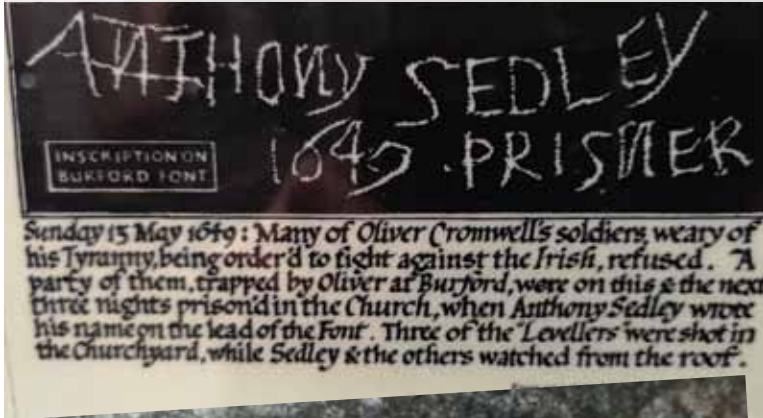 ANTHONY SEDLEY
1649 . PRISNER
INSCRIPTION ON
BURFORD FONT
Sunday 13 May 1649: Many of Oliver Cromwell's soldiers, weary of
his Tyranny, being order'd to fight against the Irish, refused. A
party of them, trapped by Oliver at Burford, were on this & the next
three nights prison'd in the Church, when Anthony Sedley wrote
his name on the lead of the Font. Three of the "Levellers" were shot in
the Churchyard, while Sedley & the others watched from the roof.